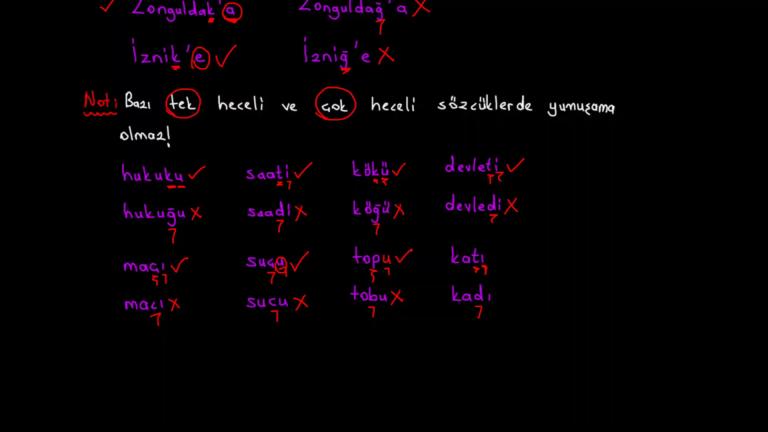 Zonguldak'a Zonguldağ'a
İznik'e İzniğ'e
Not: Bazı tek heceli ve çok heceli sözcüklerde yumuşama
olmaz!
hukuku saati kökü devleti
hukuğu saadi köğü devledi
maçı suçu topu katı
macı sucu tobu kadı